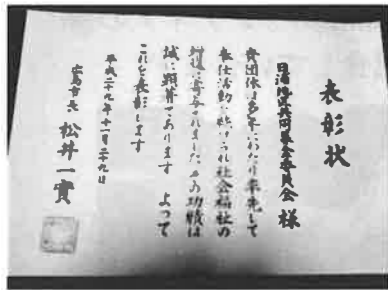 表彰状
日清港共同募金委員会 様
貴団体は多年にわたり率先して
奉仕活動に務められ社会福祉の
増進に寄与されましたその功績は
誠に顕著であります よって
これを表彰します
平成二十九年十一月二十九日
広島市長 松井一實